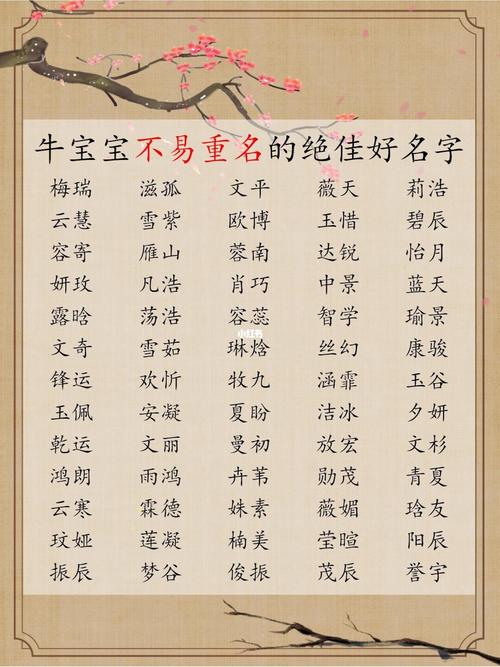 牛宝宝不易重名的绝佳好名字
梅瑞 滋孤 文平 薇天 莉浩
云慧 雪紫 欧博 玉惜 碧辰
容寄 雁山 蓉南 达锐 怡月
妍玫 凡浩 肖巧 中景 蓝天
露晗 荡浩 容蕊 智学 瑜景
小红书
文奇 雪茹 琳焓 丝幻 康骏
锋运 欢忻 牧九 涵霏 玉谷
玉佩 安凝 夏盼 洁冰 夕妍
乾运 文丽 曼初 放宏 文杉
鸿朗 雨鸿 卉苇 勋茂 青夏
云寒 霖德 姝素 薇媚 琀友
玟娅 莲凝 楠美 莹暄 阳辰
振辰 梦谷 俊振 茂辰 誉宇